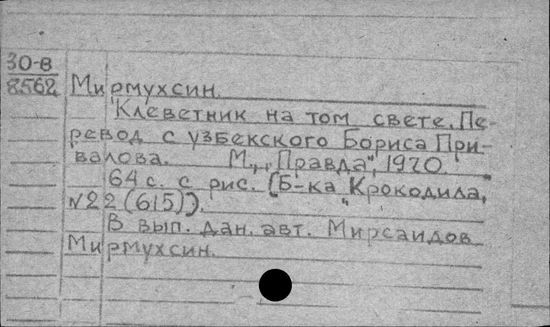 30-8
8562
Мирмухсин.
Клеветник на том свете. Пе-
ревод с узбекского Бориса При-
валова. М., "Правда", 1970.
64 с. с рис. (Б-ка "Крокодила,
№22 (615)).
В вып. дан. авт. Мирсаидов
Мирмухсин.